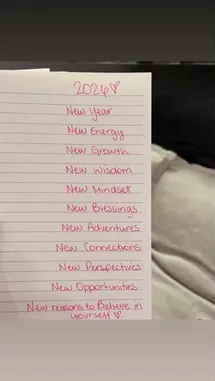 2026♡
New Year
New Energy
New Growth
New Wisdom
New Mindset
New Blessings
New Adventures
New Connections
New Perspectives
New Opportunities
New reasons to Believe in
yourself ♡